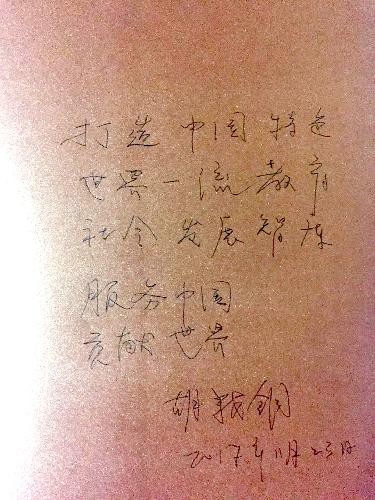 打造中国特色
世界一流教育
社会发展智库
服务中国
贡献世界
胡鞍钢
2017年11月23日